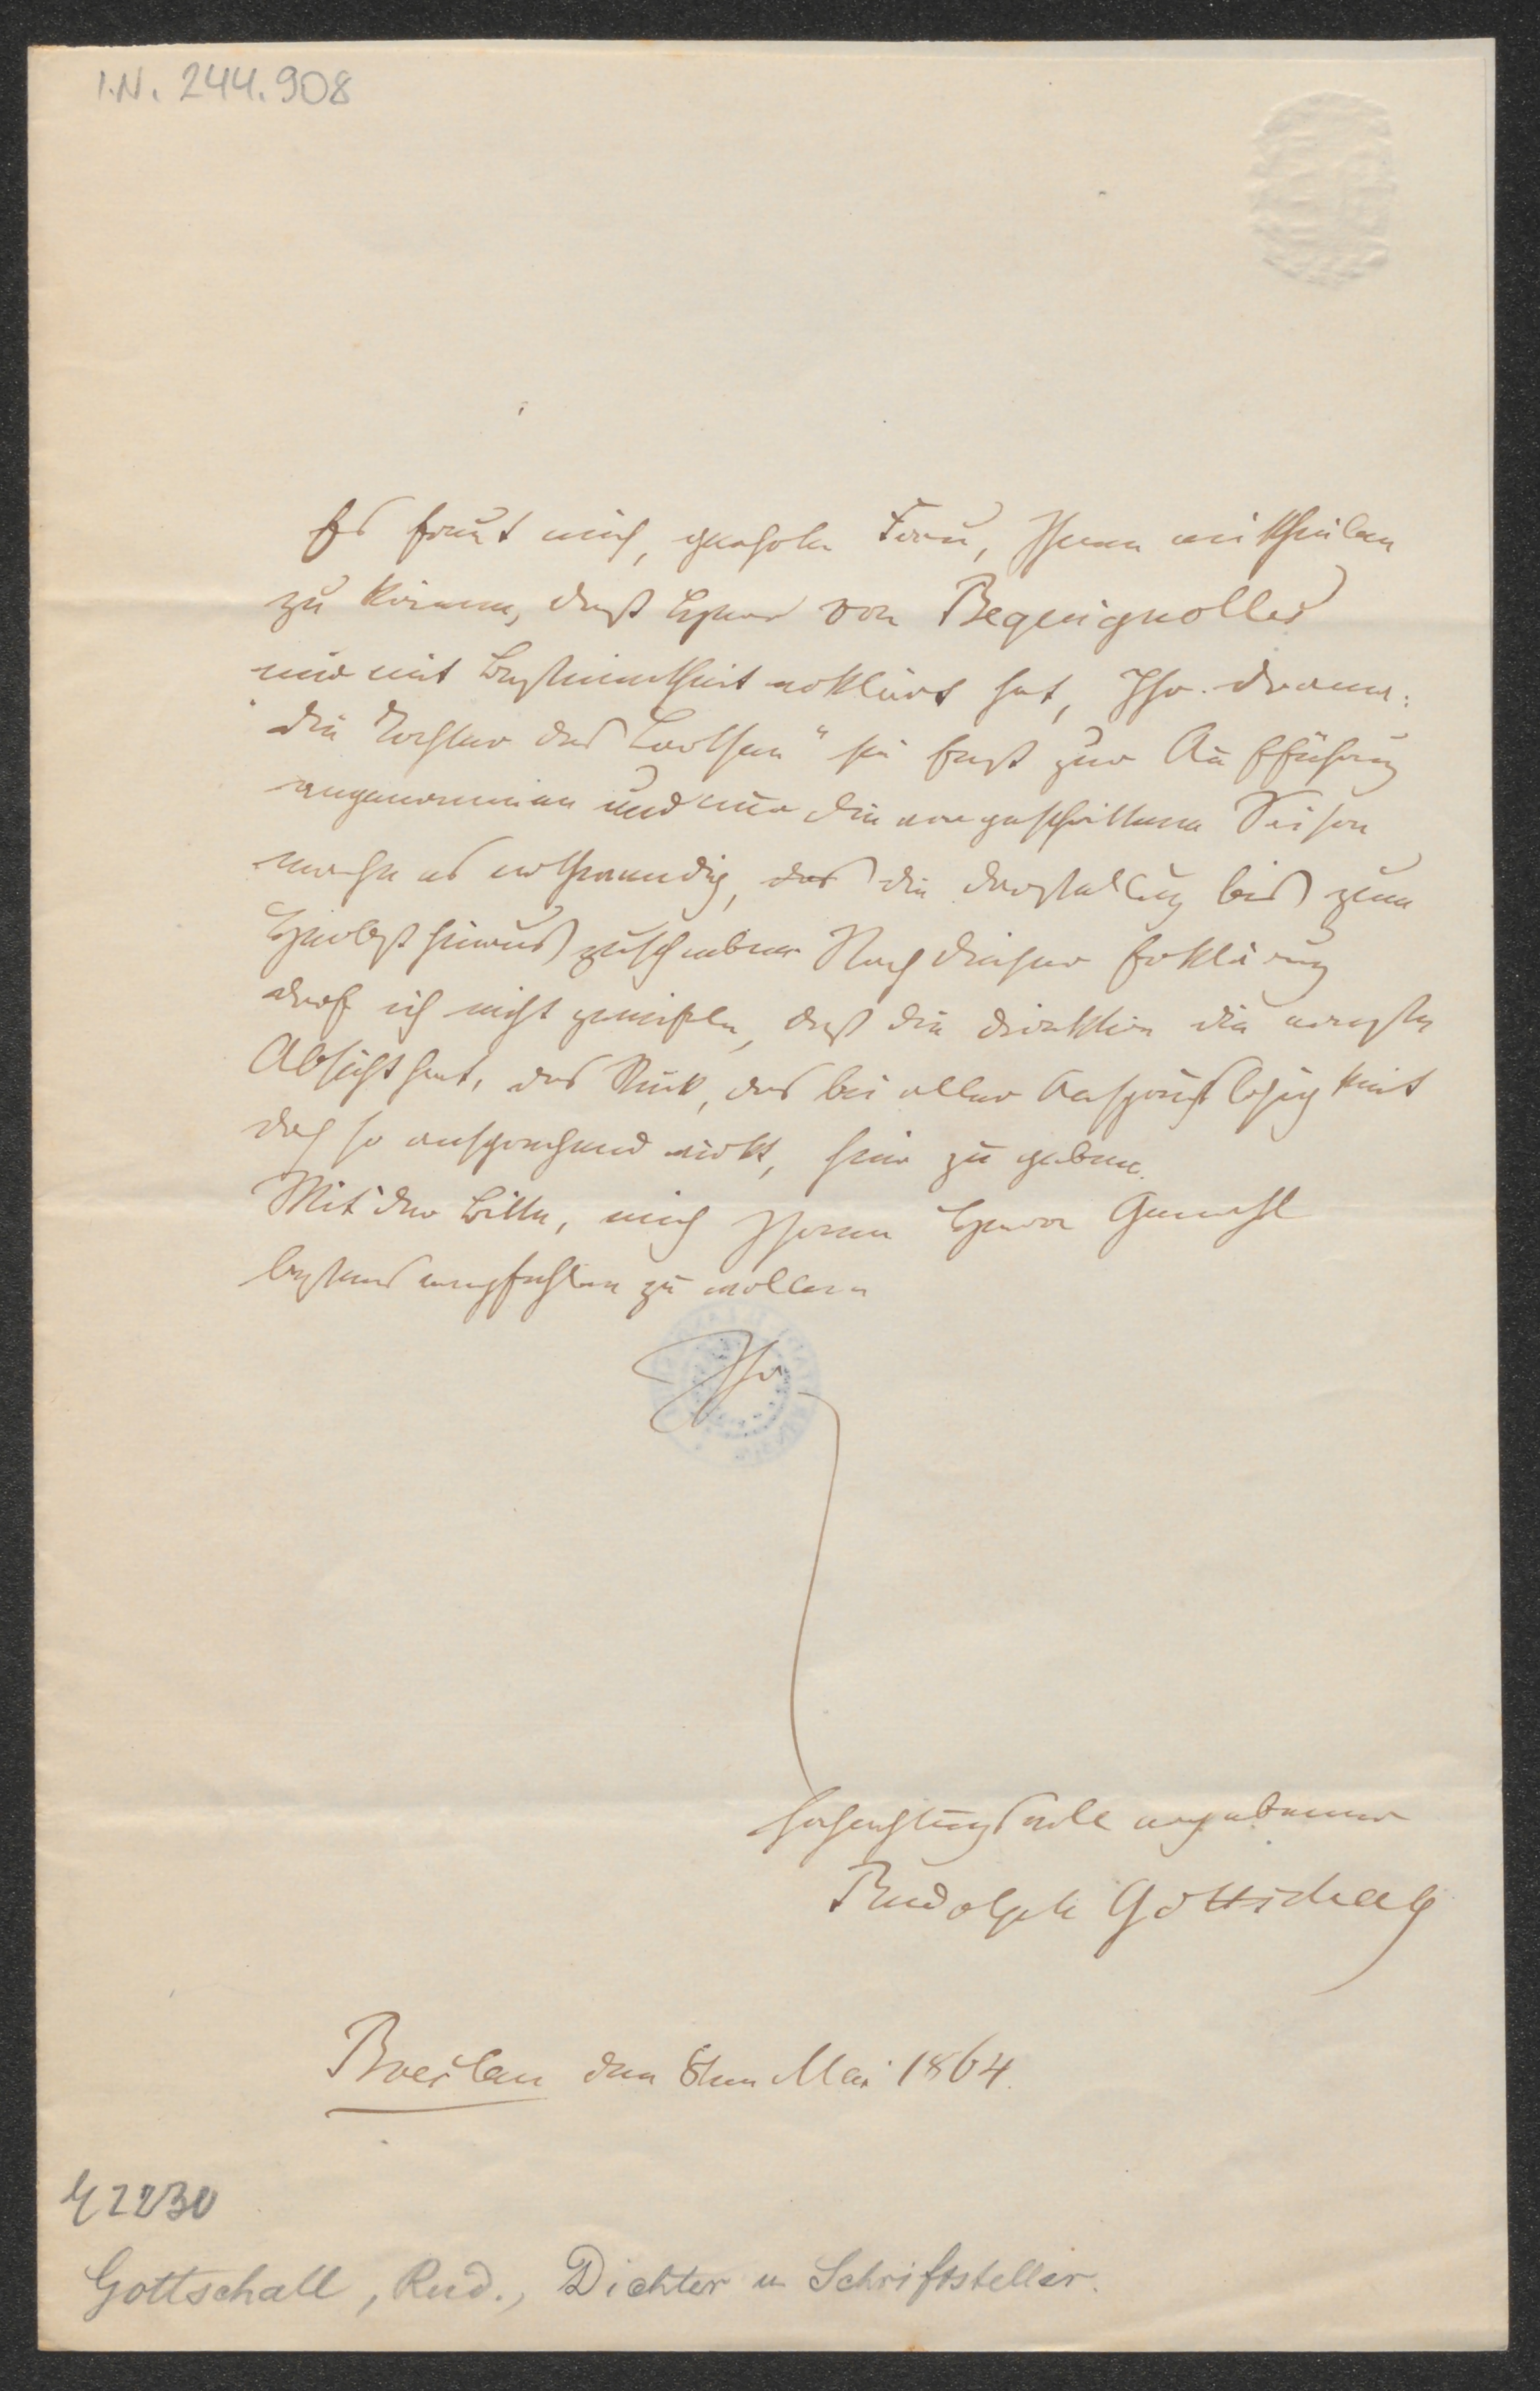 I.N. 244.908
Es freut mich, geehrte Frau, Ihnen mittheilen
zu können, daß Herr von Bequignolles
mir mit Bestimmtheit erklärt hat, Ihr Drama:
"die Tochter des Lootsen" sei fest zur Aufführung
angenommen und nur die vorgeschrittene Saison
mache es nothwendig, das die Darstellung bis zum
Herbst hinaus zuschieben. Nach dieser Erklärung
darf ich nicht zweifeln, daß die Direktion die ernste
Absicht hat, das Stück, das bei aller Anspruchslosigkeit
doch so ansprechend wirkt, hier zu geben.
Mit der Bitte, mich Ihrem Herrn Gemahl
bestens empfehlen zu wollen
Ihr
hochachtungsvoll ergebener
Rudolph Gottschall
Breslau den 8ten Mai 1864.
Gottschall, Rud., Dichter u Schriftsteller.